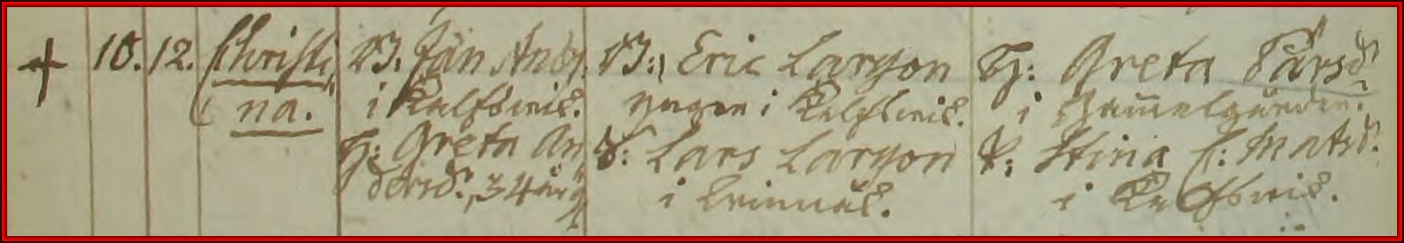 +
10.
12.
Christi
na.
B. Jan And
i Kalfswik.
H: Greta An
dersd: 34 år
B: Eric Larsson
yngre i Kalfswik.
D: Lars Larsson
i
H: Greta Pärsd:
i Gammelgården.
P: Stina Matsd:
i Kalfswik.